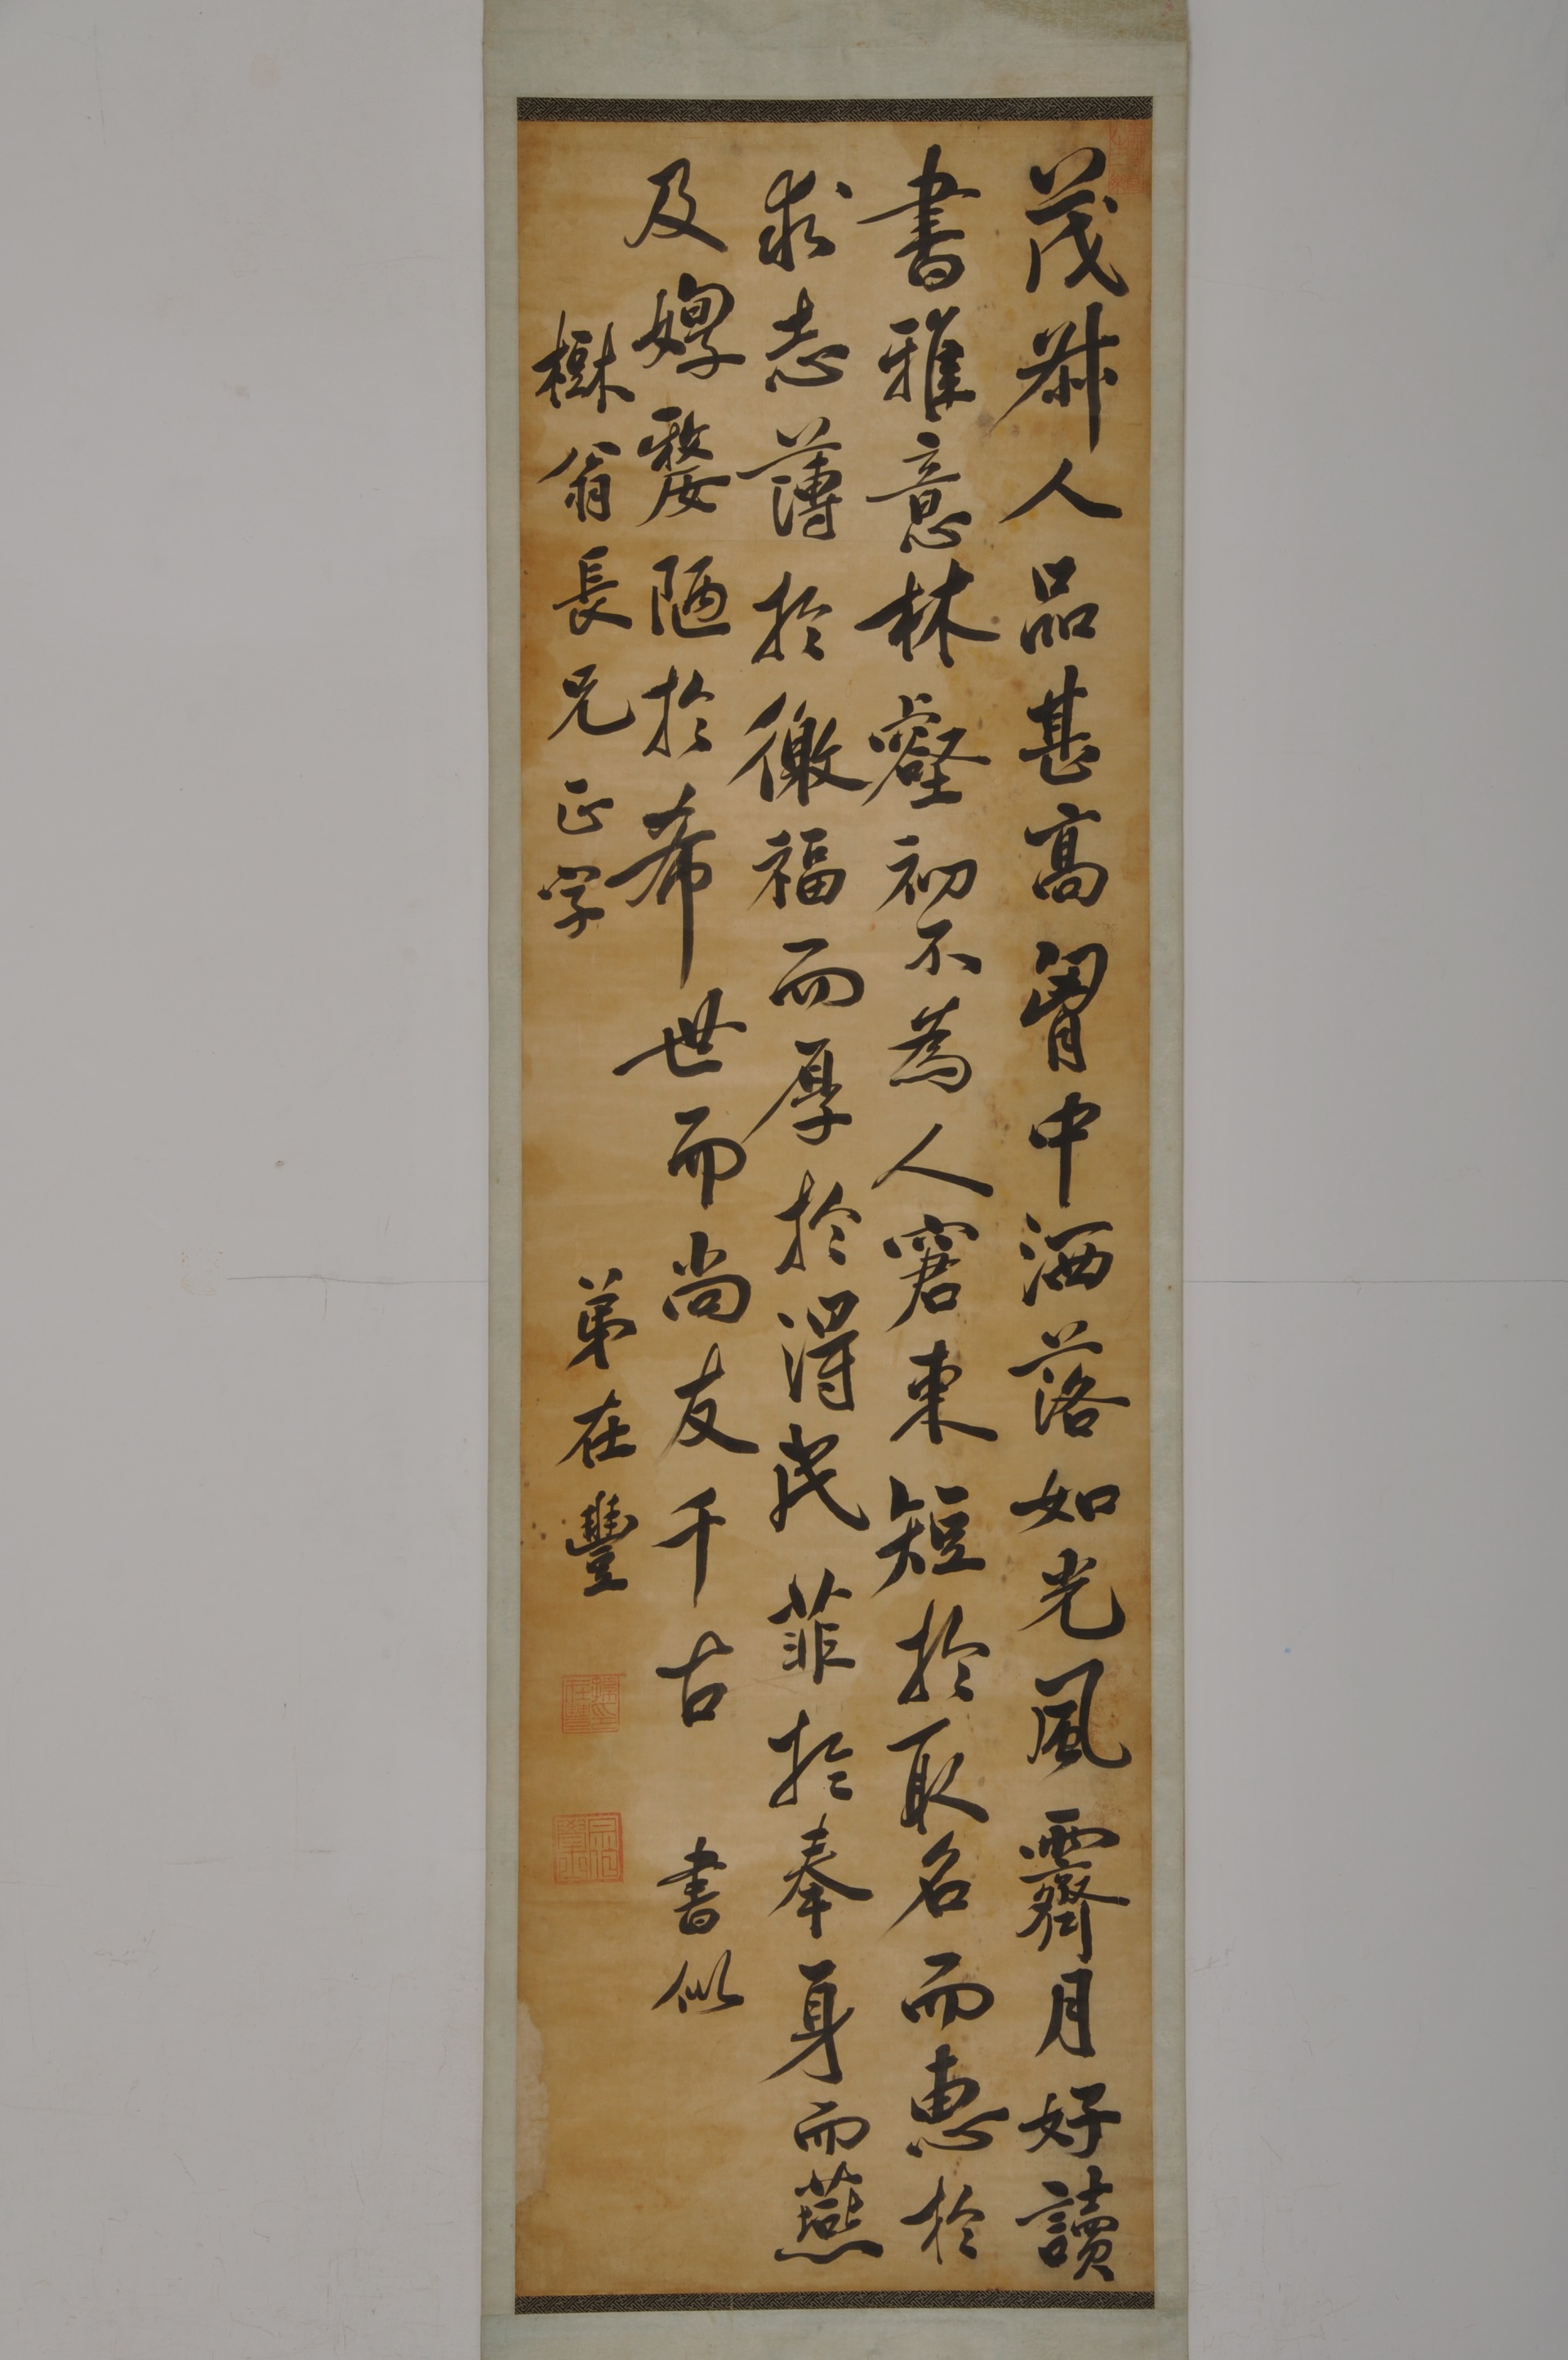 茂叔人品甚高胷中洒落如光風霽月好讀
書雅意林壑初不為人窘束短於取名而惠於
求志薄於徼福而厚於得民菲於奉身而燕
及嫠陋於希世而尚友千古 書似
樹翁長兄正字 弟在豐